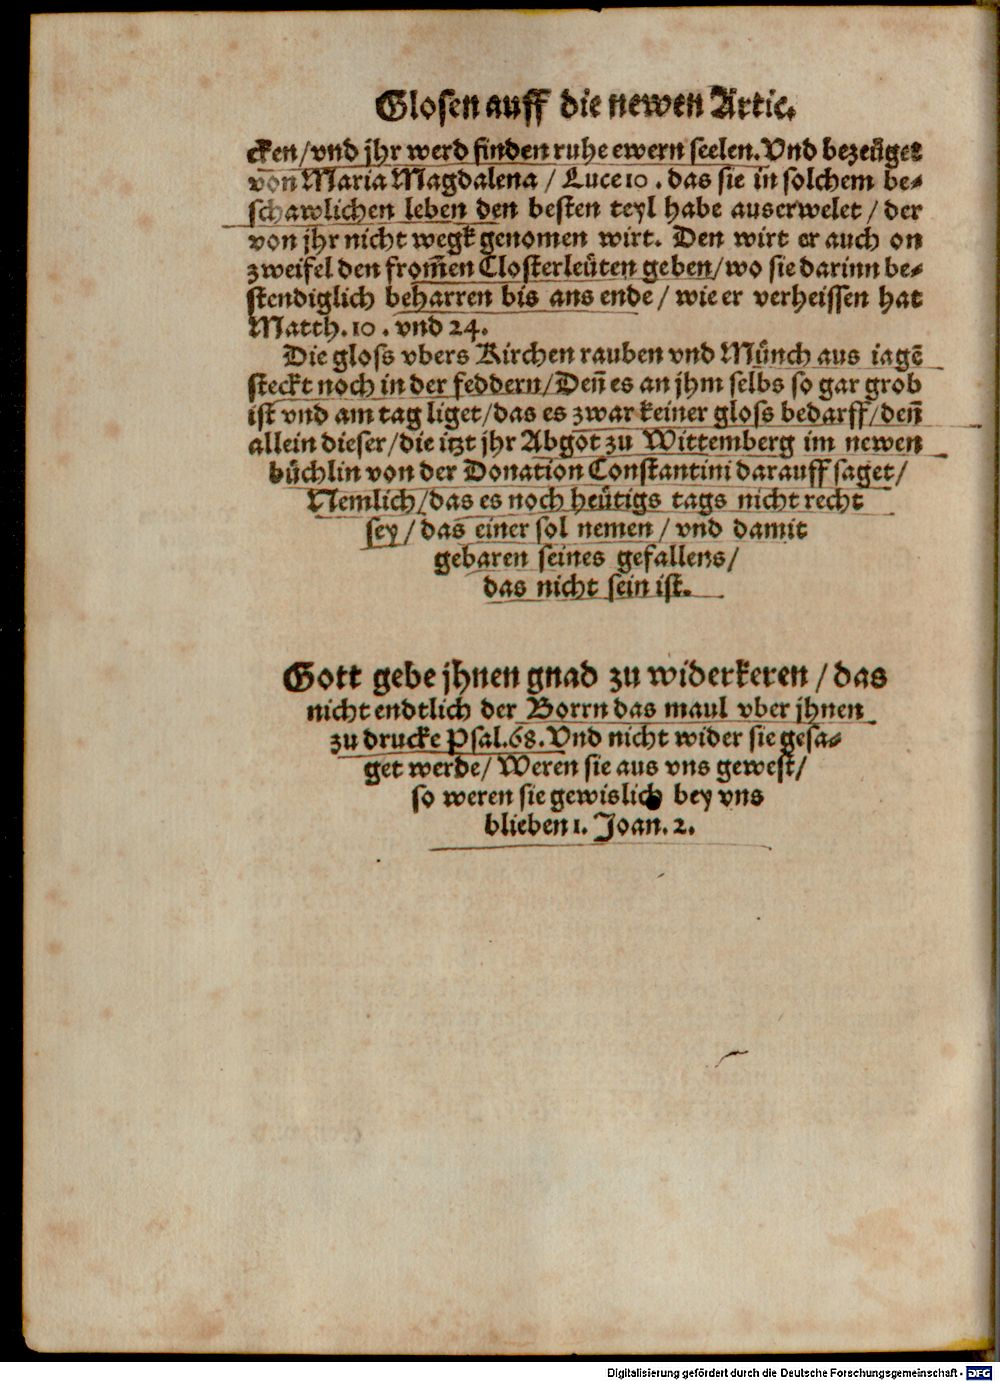 Glosen auff die newen Artic.
cken/vnd jhr werd finden ruhe ewern seelen. Vnd bezeüget
von Maria Magdalena / Luce 10 . das sie in solchem be⸗
schawlichen leben den besten teyl habe auserwelet / der
von jhr nicht wegk genomen wirt. Den wirt er auch on
zweifel den from̃en Closterleüten geben/wo sie darinn be⸗
stendiglich beharren bis ans ende / wie er verheissen hat
Matth. 10 . vnd 24.
Die gloss vbers Kirchen rauben vnd Münch aus iagẽ
steckt noch in der feddern/Deñ es an jhm selbs so gar grob
ist vnd am tag liget/das es zwar keiner gloss bedarff/deñ
allein dieser/die itzt jhr Abgot zu Wittemberg im newen
büchlin von der Donation Constantini darauff saget/
Nemlich/das es noch heütigs tags nicht recht
sey/das einer sol nemen / vnd damit
gebaren seines gefallens/
das nicht sein ist.
Gott gebe jhnen gnad zu widerkeren / das
nicht endtlich der Borrn das maul vber jhnen
zu drucke Psal.68. Vnd nicht wider sie gesa⸗
get werde/ Weren sie aus vns gewest/
so weren sie gewislich bey vns
blieben 1. Joan. 2.
Digitalisierung gefördert durch die Deutsche Forschungsgemeinschaft - DFG